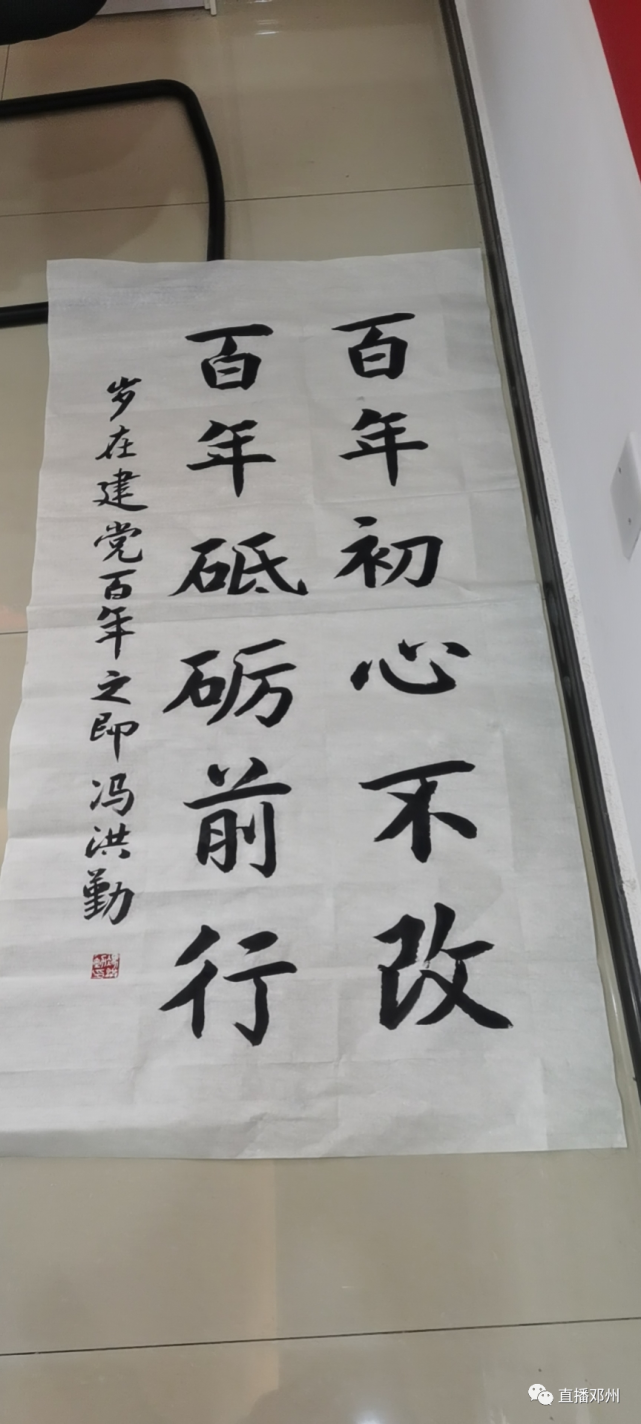 百年初心不改
百年砥砺前行
岁在建党百年之即冯洪勤
直播邓州